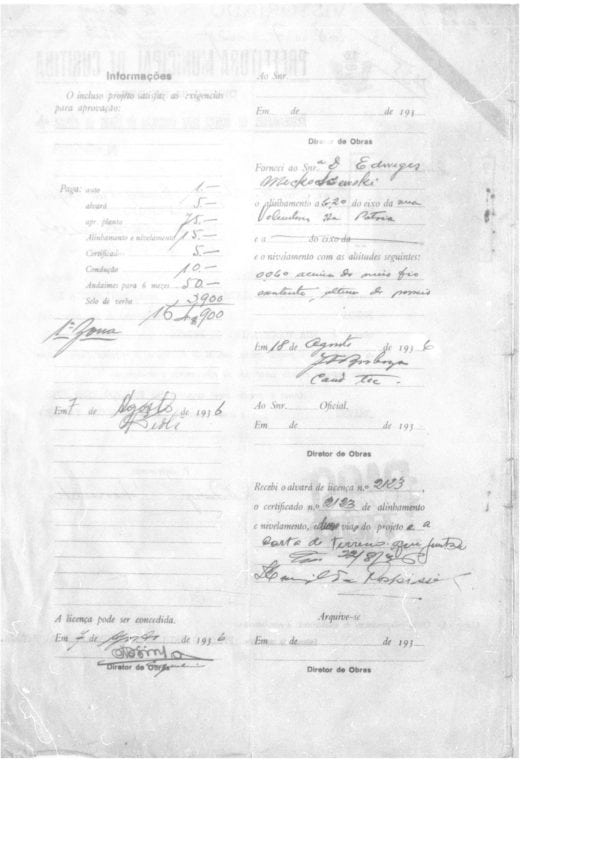 Informações
O incluso projéto satisfaz as exigencias
para aprovação:
Paga: auto 1.—
alvará 5.—
apr. planta 75.—
Alinhamento e nivelamento 15.—
Certificado 5.—
Condução 10.—
Andaimes para 6 mezes 50.—
Selo de verba 3900
164,900
1ª Zona
Em 7 de Agosto de 1936
A licença pode ser concedida.
Em 7 de Agosto de 1936
Diretor de Obras
Ao Snr.
Em de de 193
Diretor de Obras
Forneci ao Snr.ª D Edwiges
o alinhamento a 6,20 do eixo da rua
Voluntarios da Patria
e a do eixo da
e o nivelamento com as altitudes seguintes:
0,060 acima do meio fio
existente, altura do passeio
Em 18 de Agosto de 1936
Cand tec.
Ao Snr. Oficial.
Em de de 193
Diretor de Obras
Recebi o alvará de licença n.º 2123
o certificado n.º 2123 de alinhamento
e nivelamento, vias do projéto e a
carta de terreno que juntei
Em 22/8/36
Arquive-se
Em de de 193
Diretor de Obras